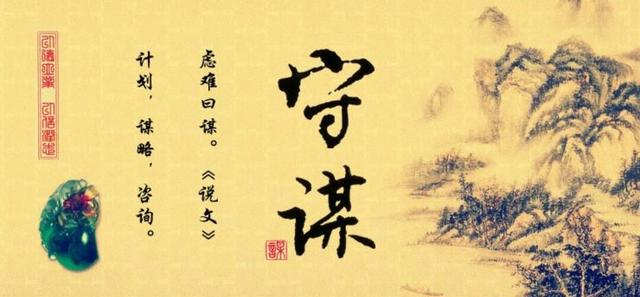 守谋
虑难曰谋。《说文》
计划，谋略，咨询。